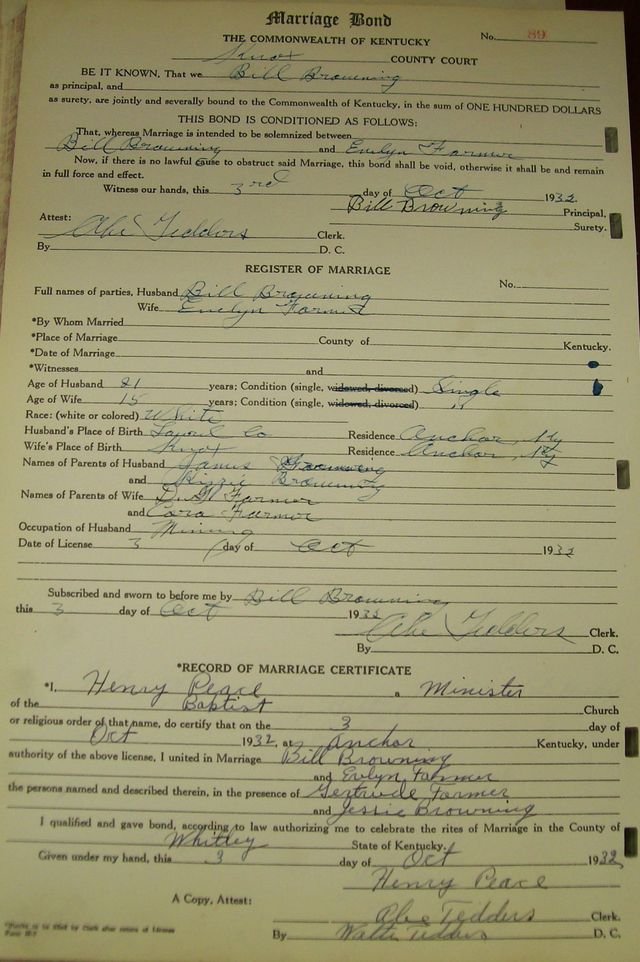 Marriage Bond
THE COMMONWEALTH OF KENTUCKY No. 89
Knox COUNTY COURT
BE IT KNOWN, That we Bill Browning
as principal, and
as surety, are jointly and severally bound to the Commonwealth of Kentucky, in the sum of ONE HUNDRED DOLLARS
THIS BOND IS CONDITIONED AS FOLLOWS:
That, whereas Marriage is intended to be solemnized between
Bill Browning and Evelyn Farmer
Now, if there is no lawful cause to obstruct said Marriage, this bond shall be void, otherwise it shall be and remain
in full force and effect.
Witness our hands, this 3rd day of Oct 1932.
Bill Browning Principal,
Surety.
Attest:
Abe Tedders Clerk.
By D. C.
REGISTER OF MARRIAGE
No.
Full names of parties, Husband Bill Browning
Wife Evelyn Farmer
*By Whom Married
*Place of Marriage County of Kentucky.
*Date of Marriage
*Witnesses and
Age of Husband 21 years; Condition (single, widowed, divorced) Single
Age of Wife 15 years; Condition (single, widowed, divorced) "
Race: (white or colored) White
Husband's Place of Birth Laurel Co Residence Anchor, Ky
Wife's Place of Birth Knox Residence Anchor, Ky
Names of Parents of Husband James Browning
and Browning
Names of Parents of Wife Farmer
and Cora Farmer
Occupation of Husband Mining
Date of License 3 day of Oct 1932
Subscribed and sworn to before me by Bill Browning
this 3 day of Oct 1932
Abe Tedders Clerk.
By D. C.
*RECORD OF MARRIAGE CERTIFICATE
*I, Henry Peace a Minister
of the Baptist Church
or religious order of that name, do certify that on the 3 day of
Oct 1932, at Anchor Kentucky, under
authority of the above license, I united in Marriage Bill Browning
and Evlyn Farmer
the persons named and described therein, in the presence of Gertrude Farmer
and Jessie Browning
I qualified and gave bond, according to law authorizing me to celebrate the rites of Marriage in the County of
Whitley State of Kentucky.
Given under my hand, this 3 day of Oct 1932,
Henry Peace
A Copy, Attest:
Abe Tedders Clerk.
By Walter Tedders D. C.
*Blanks to be filled by Clerk after return of License